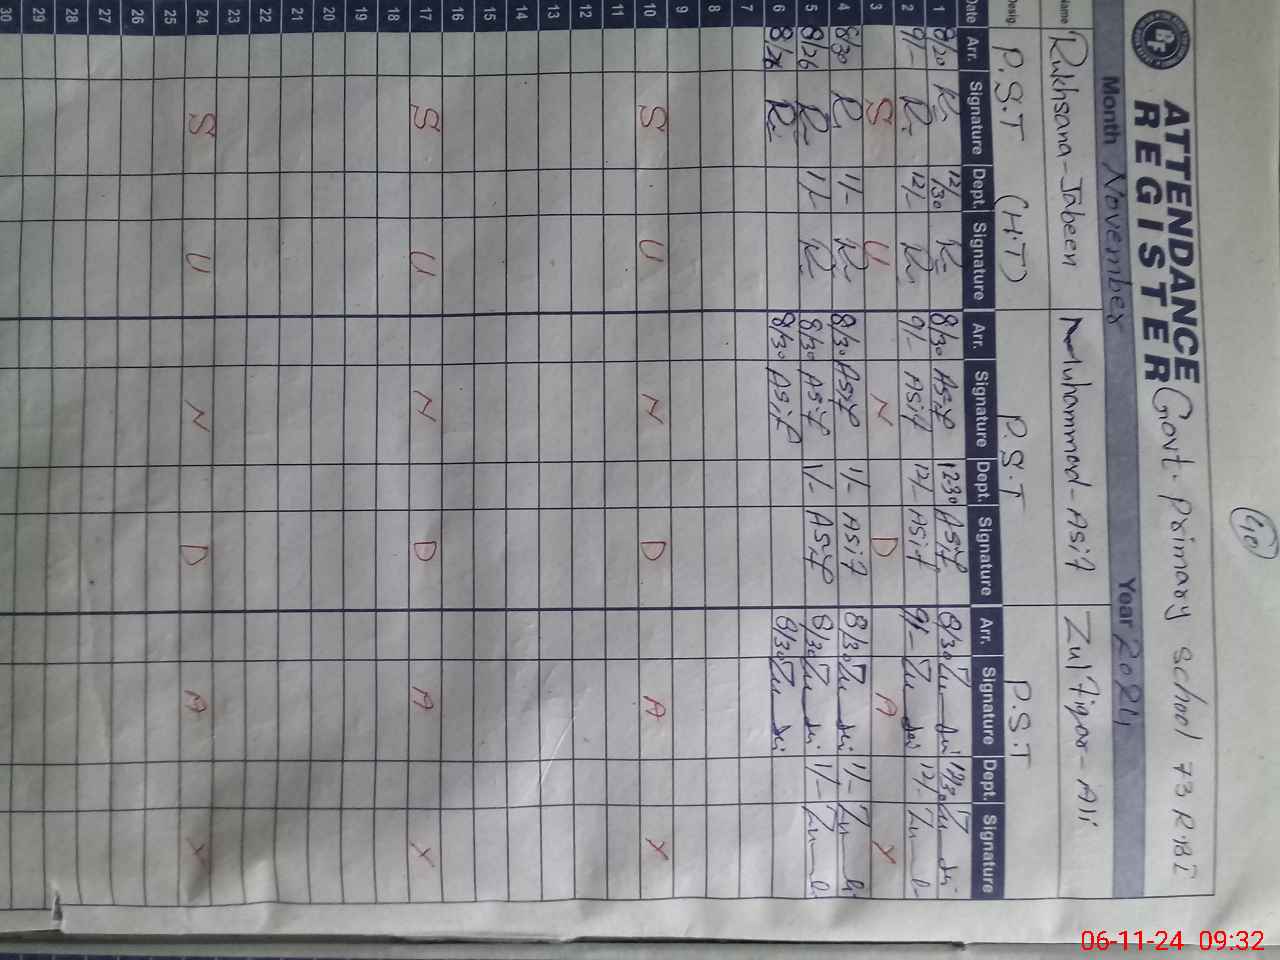 40
ATTENDANCE REGISTER
Govt. Primary School 73 R.B I
Month November Year 2024
Name Rukhsana-Jabeen Muhammad-Asif Zulfiqar-Ali
Desig P.S.T (H.T) P.S.T P.S.T
Date Arr. Signature Dept. Signature Arr. Signature Dept. Signature Arr. Signature Dept. Signature
1 8/20 12/30 8/30 Asif 1230 Asif 8/30 12/30
2 9/- 12/- 9/- Asif 12/- Asif 9/- 12/-
3 S U N D A Y
4 8/30 1/- 8/30 Asif 1/- Asif 8/30 1/-
5 8/26 1/- 8/30 Asif 1/- Asif 8/30 1/-
6 8/26 8/30 Asif 8/30
7
8
9
10 S U N D A Y
11
12
13
14
15
16
17 S U N D A Y
18
19
20
21
22
23
24 S U N D A Y
25
26
27
28
29
30
06-11-24 09:32